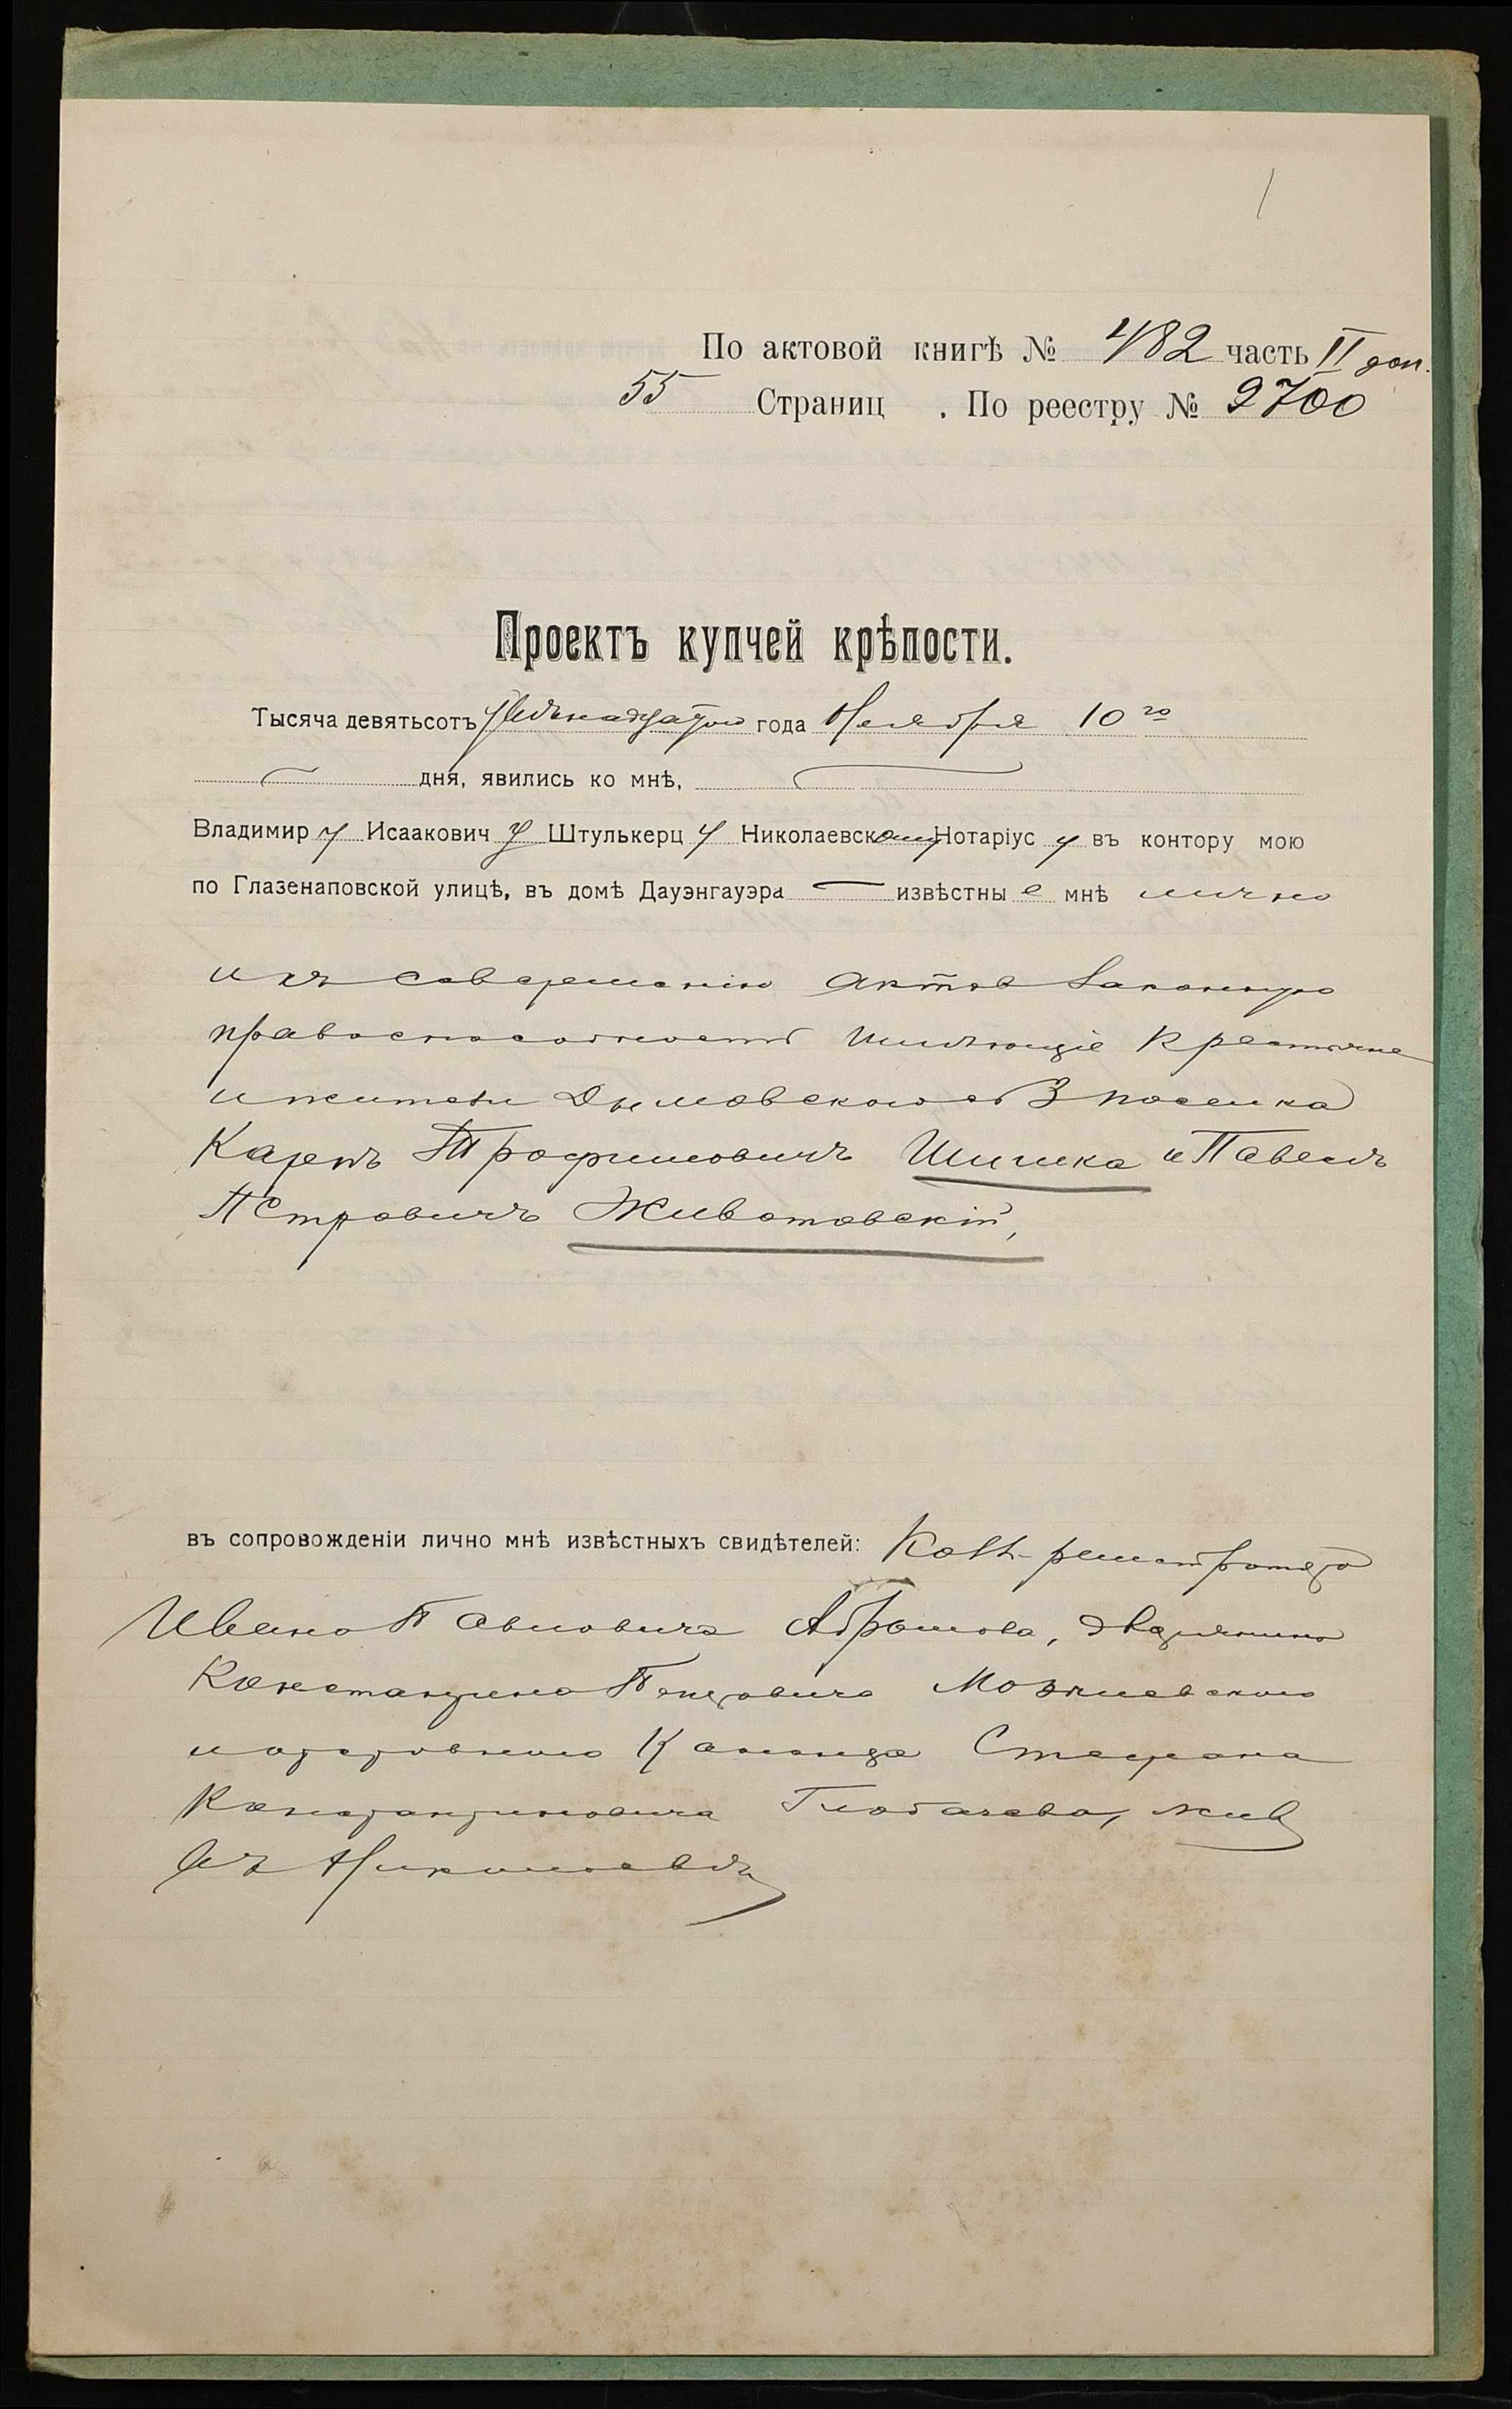 1
По актовой книгѣ № 482 часть II доп.
55 Страниц . По реестру № 2700
Проектъ купчей крѣпости.
Тысяча девятьсотъ года Ноября 10го
дня, явились ко мнѣ,
Владимир у Исаакович у Штулькерц у Николаевскому Нотаріус у въ контору мою
по Глазенаповской улицѣ, въ домѣ Дауэнгауэра извѣстны е мнѣ лично
и къ совершенію актов законную
правоспособность имѣющіе крестьяне
и жители поселка
Карпъ Трофимовичъ Шишка и Павелъ
Петровичъ Животовскій,
въ сопровожденіи лично мнѣ извѣстныхъ свидѣтелей: Колл. регистратора
Ивана Павловича Абрамова, дворянина
Константина Петровича
и Стефана
Константиновича Глобачева, жив
въ Николаевѣ